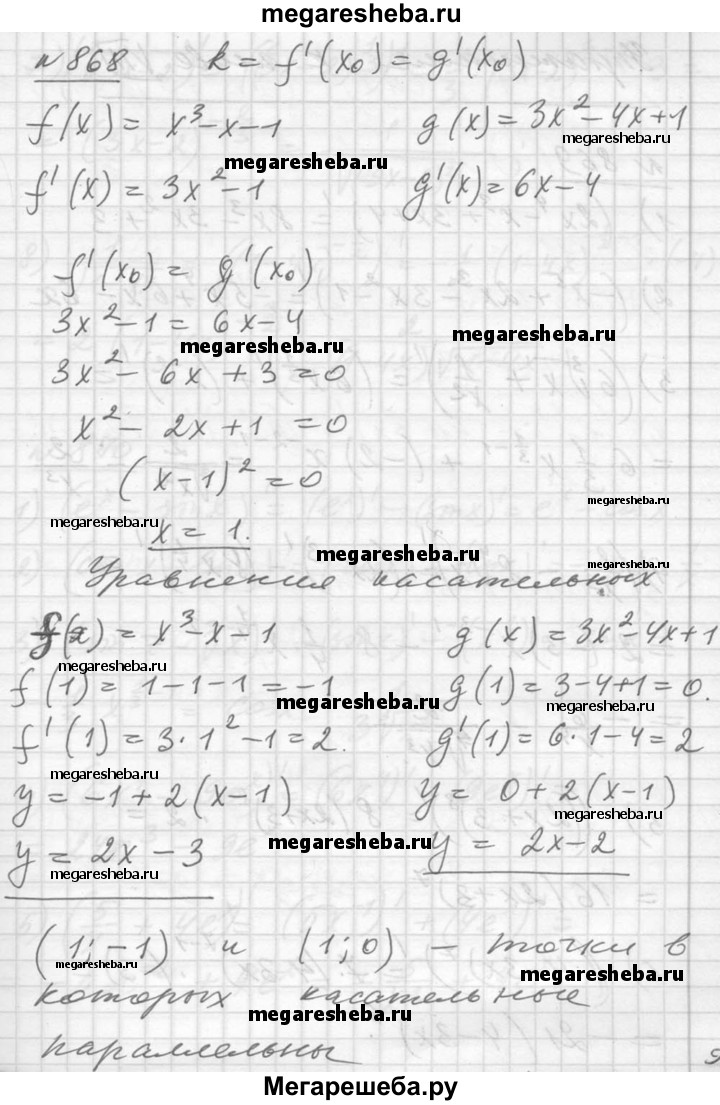 megaresheba.ru
№868 k = f'(x₀) = g'(x₀)
f(x) = x³-x-1 g(x) = 3x²-4x+1
megaresheba.ru
megaresheba.ru
f'(x) = 3x²-1 g'(x) = 6x-4
f'(x₀) = g'(x₀)
3x²-1 = 6x-4
megaresheba.ru
megaresheba.ru
3x²- 6x + 3 = 0
x²- 2x + 1 = 0
(x-1)² = 0
megaresheba.ru
megaresheba.ru
x = 1.
megaresheba.ru
megaresheba.ru
Уравнения касательных
f(x) = x³-x-1 g(x) = 3x²-4x+1
megaresheba.ru
f(1) = 1-1-1 = -1 g(1) = 3-4+1 = 0.
megaresheba.ru
megaresheba.ru
f'(1) = 3·1²-1 = 2. g'(1) = 6·1-4 = 2
megaresheba.ru
y = -1+2(x-1) y = 0+2(x-1)
megaresheba.ru
y = 2x-3 y = 2x-2
megaresheba.ru
megaresheba.ru
(1;-1) и (1;0) - точки в
megaresheba.ru
megaresheba.ru
которых касательные
megaresheba.ru
параллельны
Мегарешеба.ру